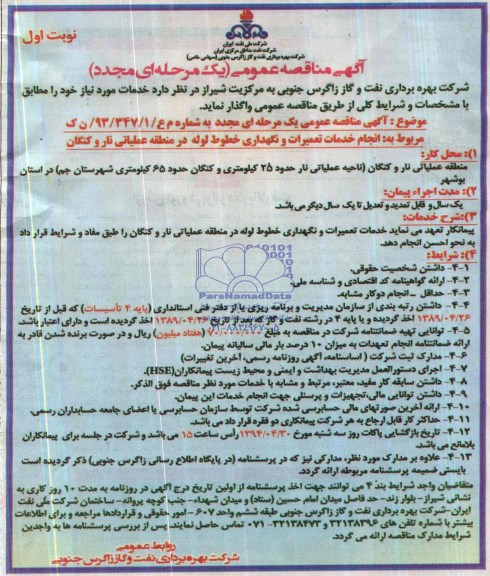 نوبت اول
شرکت ملی نفت ایران
شرکت نفت مناطق مرکزی ایران
شرکت بهره برداری نفت و گاز زاگرس جنوبی (سهامی خاص)
آگهی مناقصه عمومی (یک مرحله ای مجدد)
شرکت بهره برداری نفت و گاز زاگرس جنوبی به مرکزیت شیراز در نظر دارد خدمات مورد نیاز خود را مطابق
با مشخصات و شرایط کلی از طریق مناقصه عمومی واگذار نماید.
موضوع : آگهی مناقصه عمومی یک مرحله ای مجدد به شماره م ع/۹۳/۳۴۷/۱/ ن ک
مربوط به: انجام خدمات تعمیرات و نگهداری خطوط لوله در منطقه عملیاتی نار و کنگان
۱): محل کار:
منطقه عملیاتی نار و کنگان (ناحیه عملیاتی نار حدود ۲۵ کیلومتری و کنگان حدود ۶۵ کیلومتری شهرستان جم) در استان
بوشهر
۲): مدت اجراء پیمان:
یک سال و قابل تمدید و تعدیل تا یک سال دیگر می باشد.
۳): شرح خدمات:
پیمانکار تعهد می نماید خدمات تعمیرات و نگهداری خطوط لوله در منطقه عملیاتی نار و کنگان را طبق مفاد و شرایط قرار داد
به نحو احسن انجام دهد.
۴): شرایط:
۴-۱- داشتن شخصیت حقوقی.
۴-۲- ارائه گواهینامه کد اقتصادی و شناسه ملی.
۴-۳- حداقل انجام دوکار مشابه.
۴-۴- داشتن رتبه بندی از سازمان مدیریت و برنامه ریزی یا از دفتر فنی استانداری (پایه ۴ تأسیسات) که قبل از تاریخ
۱۳۸۹/۰۴/۳۶ اخذ گردیده و یا پایه ۴ در رشته نفت و گاز که بعد از تاریخ ۱۳۸۹/۰۴/۳۶ اخذ گردیده است و دارای اعتبار باشد.
۴-۵- توانایی تهیه ضمانتنامه شرکت در مناقصه به مبلغ ۷۰/۰۰۰/۰۰۰ (هفتاد میلیون) ریال و در صورت برنده شدن قادر به
ارائه ضمانتنامه انجام تعهدات به میزان ۱۰ درصد بار مالی سالیانه پیمان.
۴-۶- مدارک ثبت شرکت ( اساسنامه، آگهی روزنامه رسمی، آخرین تغییرات)
۴-۷- اجرای دستورالعمل مدیریت بهداشت و ایمنی و محیط زیست پیمانکاران(HSE).
۴-۸- داشتن سابقه کار مفید، معتبر، مرتبط و مشابه با خدمات مورد نظر مناقصه فوق الذکر.
۴-۹- داشتن توانایی مالی، تجهیزات و پرسنلی جهت انجام خدمات این پیمان.
۴-۱۰- ارائه آخرین صورتهای مالی حسابرسی شده شرکت توسط سازمان حسابرسی یا اعضای جامعه حسابداران رسمی.
۴-۱۱- حداکثر کار قابل ارجاع به هر شرکت پیمانکاری دو فقره قرار داد می باشد.
۴-۱۲- تاریخ بازگشایی پاکات روز سه شنبه مورخ ۱۳۹۴/۰۴/۳۰ رأس ساعت ۱۵ می باشد و شرکت در جلسه برای پیمانکاران
بلامانع می باشد.
۴-۱۳- علاوه بر مدارک مورد نظر، مدارکی نیز که در پرسشنامه (در پایگاه اطلاع رسانی زاگرس جنوبی) ذکر گردیده است
بایستی ضمیمه پرسشنامه مربوطه ارائه گردد.
متقاضیان واجد شرایط بند ۴ می توانند جهت اخذ پرسشنامه از اولین تاریخ درج آگهی در روزنامه به مدت ۱۰ روز کاری به
نشانی شیراز- بلوار زند- حد فاصل میدان امام حسین (ستاد) و میدان شهداء- جنب کوچه پروانه- ساختمان شرکت ملی نفت
ایران-شرکت بهره برداری نفت و گاز زاگرس جنوبی طبقه ششم واحد ۶۰۷ - امور حقوقی و قراردادها مراجعه و برای اطلاعات
بیشتر با شماره تلفن های ۳۲۱۳۸۳۹۶-۳۲۱۳۸۴۷۳ ۰۷۱ تماس حاصل نمایند. پس از بررسی پرسشنامه ها به واجدین
شرایط مدارک مناقصه ارائه می گردد.
روابط عمومی
شرکت بهره برداری نفت و گاز زاگرس جنوبی
ParsNamadData